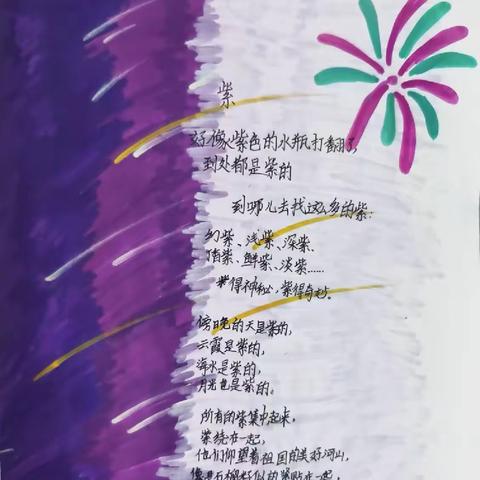 紫
好像紫色的水瓶打翻了,
到处都是紫的
到哪儿去找这么多的紫:
幻紫、浅紫、深紫、
暗紫、鲜紫、淡紫......
紫得神秘,紫得奇妙。
傍晚的天是紫的,
云霞是紫的,
海水是紫的,
月光也是紫的。
所有的紫集中起来,
紫绕在一起,
他们仰望着祖国的美好河山,
像石榴籽似的紧贴在一起,